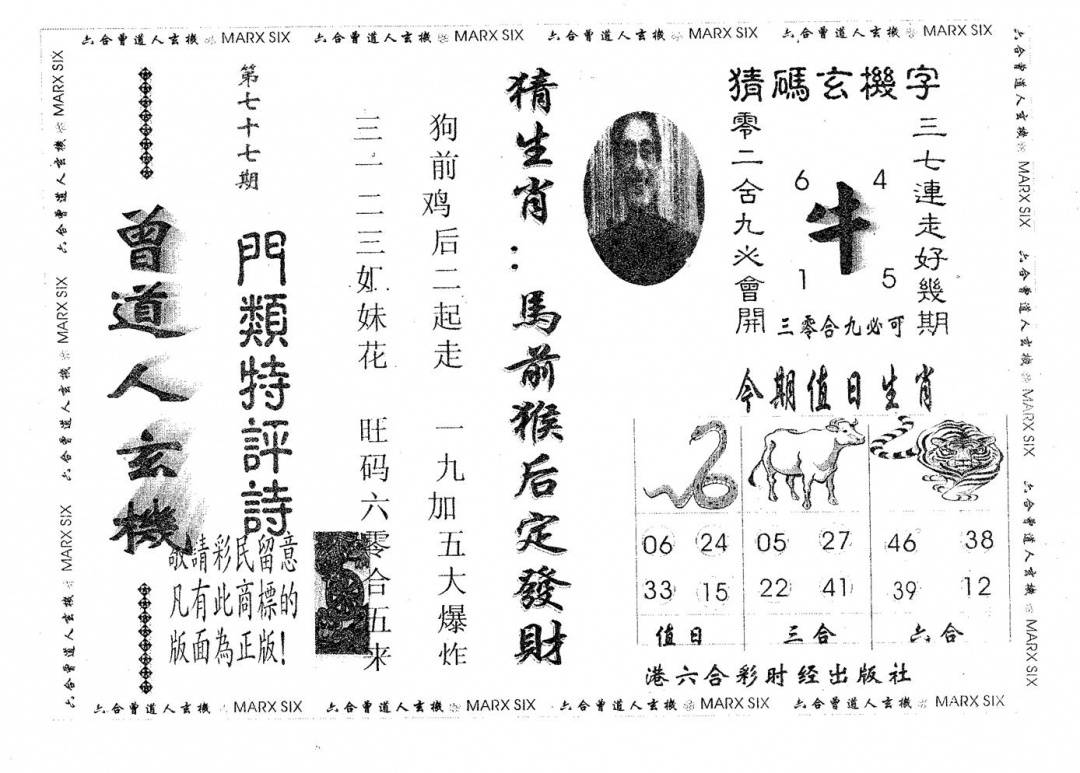 六合曾道人玄機 MARX SIX
六合曾道人玄機 MARX SIX
六合曾道人玄機 MARX SIX
六合曾道人玄機 MARX SIX
第七十七期
曾道人玄機
門類特評詩
敬請彩民留意
凡有此商標的
版面為正版!
狗前鸡后二起走 一九加五大爆炸
三一二三姐妹花 旺码六零合五来
猜生肖:馬前猴后定發財
猜碼玄機字
三七連走好幾期
零二舍九必會開
6 4
牛
1 5
三零合九必可
今期值日生肖
06 24 05 27 46 38
33 15 22 41 39 12
值日 三合 六合
港六合彩时经出版社
六合曾道人玄機 MARX SIX
六合曾道人玄機 MARX SIX
六合曾道人玄機 MARX SIX
六合曾道人玄機 MARX SIX
六合曾道人玄機 MARX SIX
六合曾道人玄機 MARX SIX
六合曾道人玄機 MARX SIX
六合曾道人玄機 MARX SIX
六合曾道人玄機 MARX SIX
六合曾道人玄機 MARX SIX